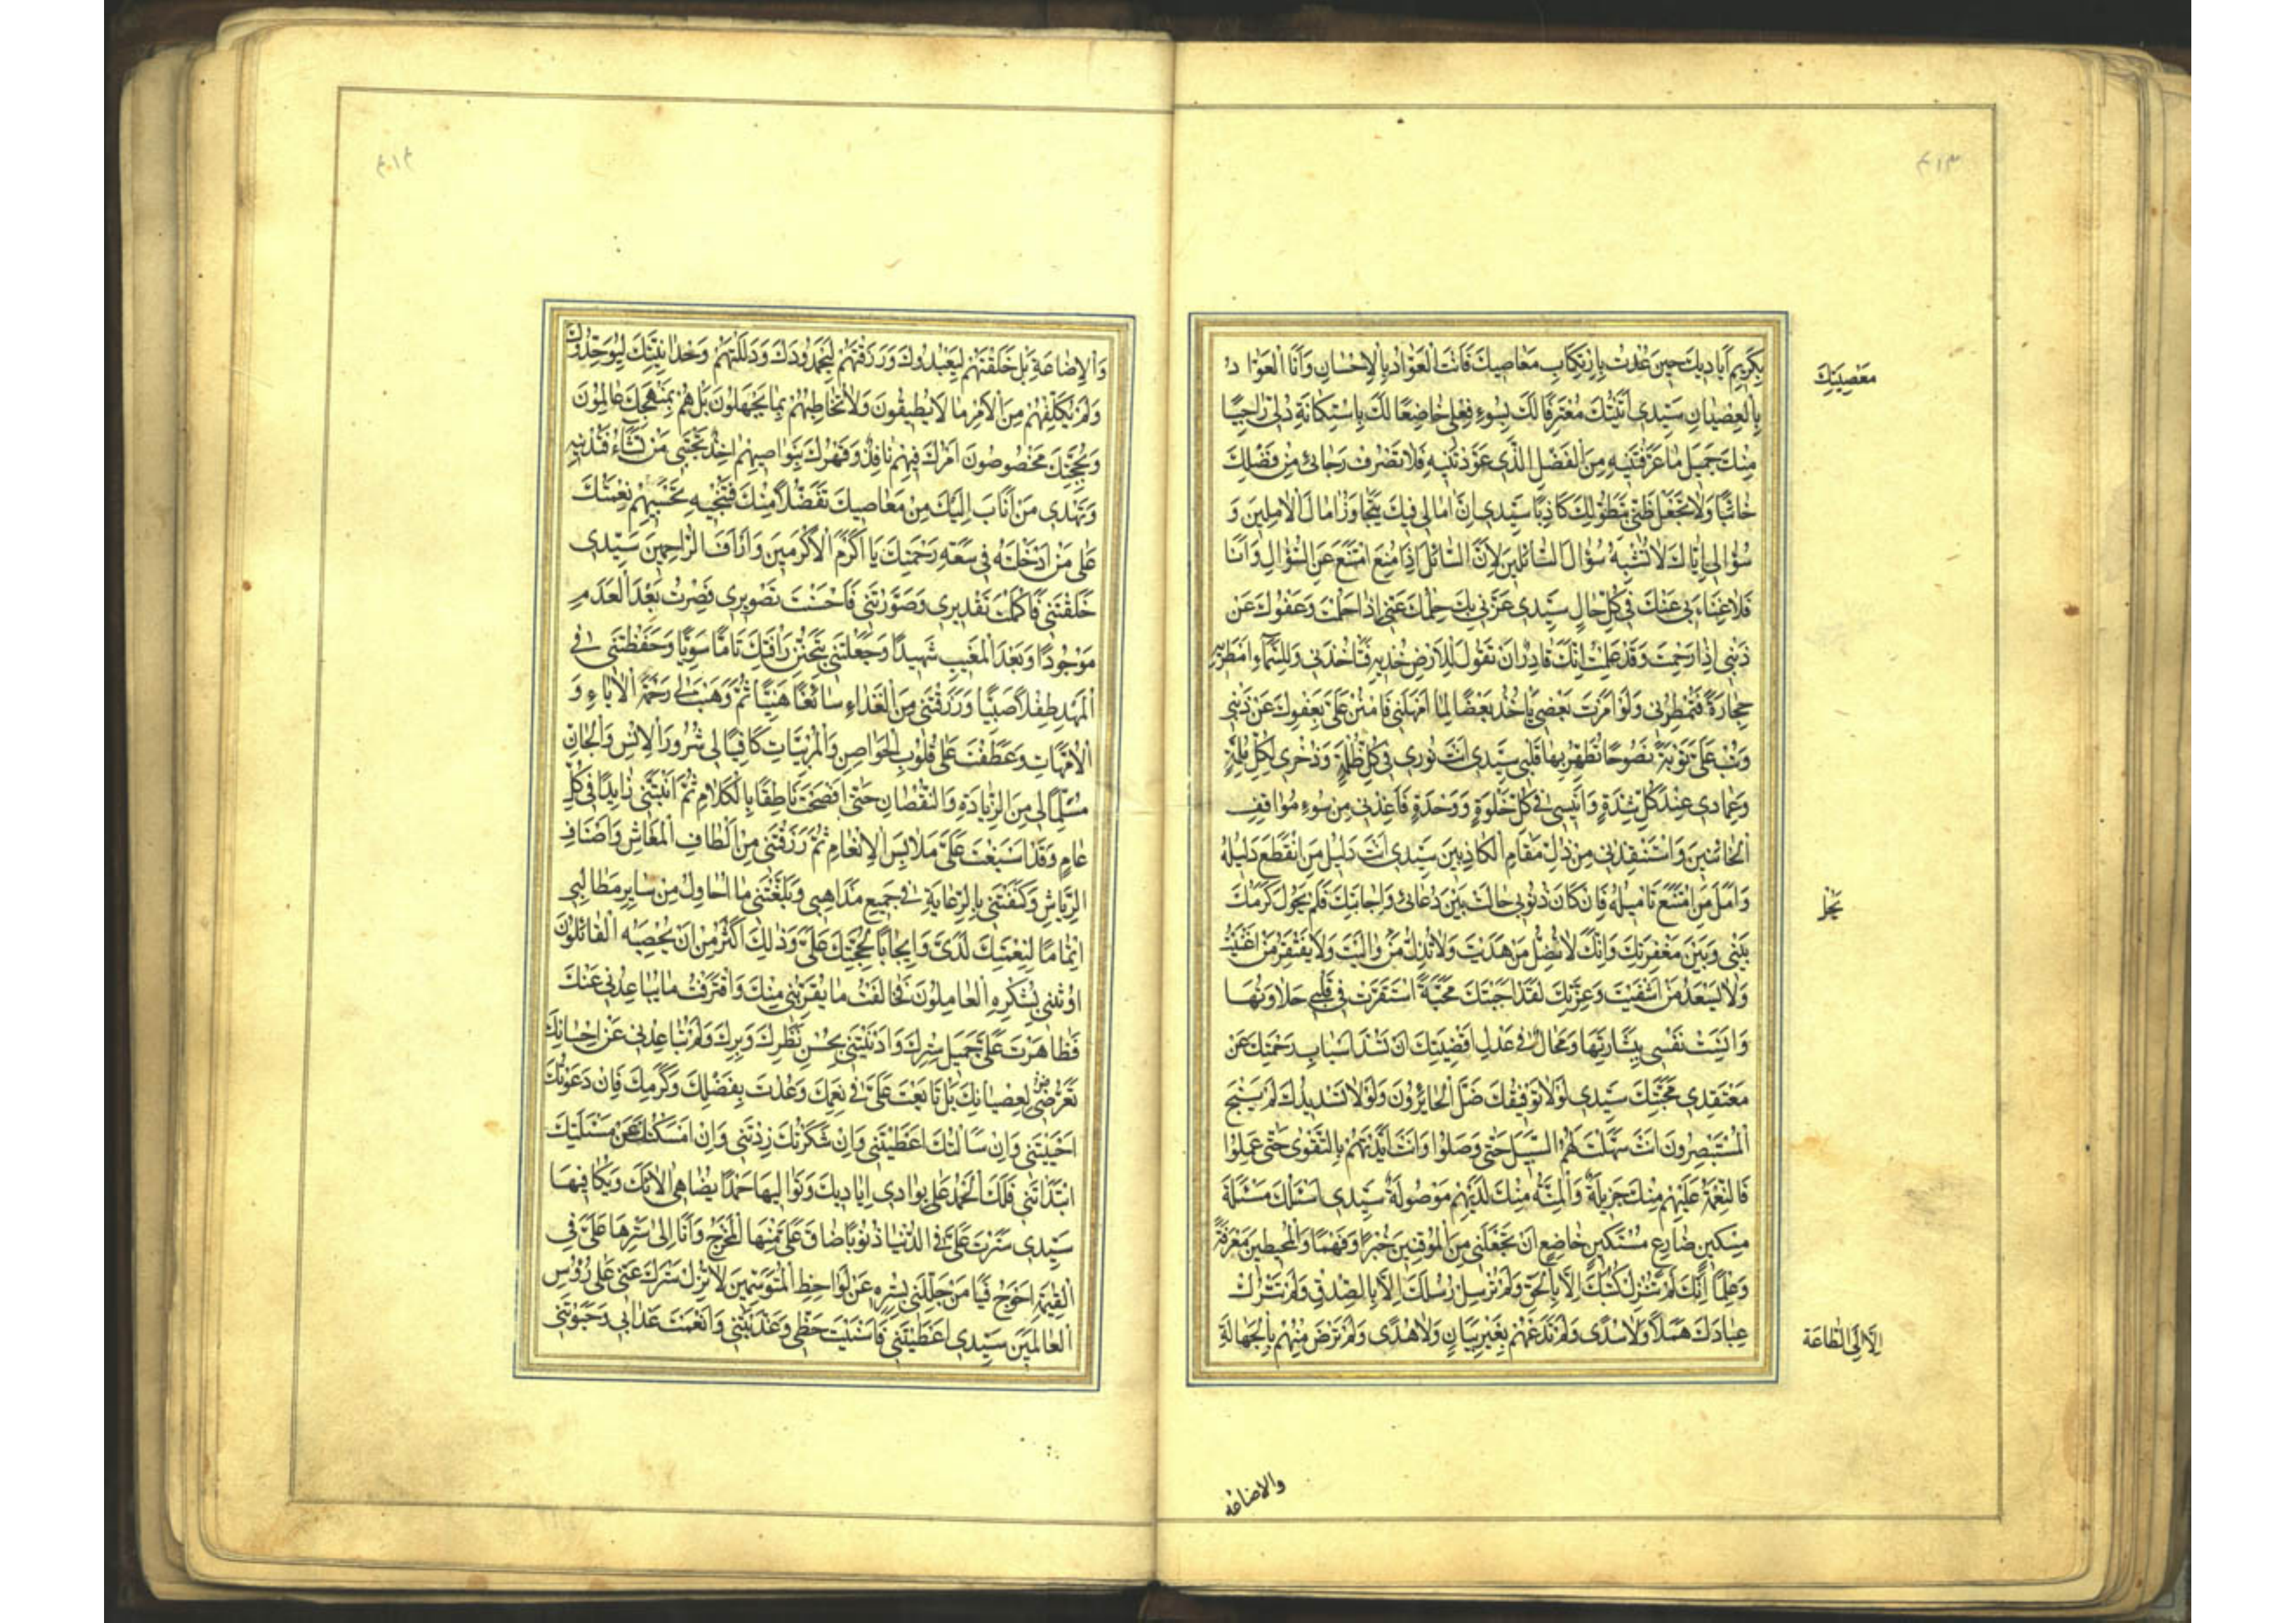 ٣١٣
بِكَرِيمِ أَيَادِيكَ حِينَ عُدْتُ بِارْتِكَابِ مَعَاصِيكَ فَأَنْتَ الْعَوَّادُ بِالْإِحْسَانِ وَأَنَا الْعَوَّادُ
معصيتك
بِالْعِصْيَانِ سَيِّدِي أَتَيْتُكَ مُعْتَرِفًا لَكَ بِسُوءِ فِعْلِي خَاضِعًا لَكَ بِاسْتِكَانَةِ ذُلِّي رَاجِيًا
مِنْكَ جَمِيلَ مَا عَرَّفْتَنِيهِ مِنَ الْفَضْلِ الَّذِي عَوَّذْتَنِيهِ فَلَا تَصْرِفْ رَجَائِي مِنْ فَضْلِكَ
خَائِبًا وَلَا تَجْعَلْ ظَنِّي بِتَطَوُّلِكَ كَاذِبًا سَيِّدِي إِنَّ آمَالِي فِيكَ يَتَجَاوَزُ آمَالَ الْآمِلِينَ وَ
سُؤَالِي إِيَّاكَ لَا تُشْبِهُ سُؤَالَ السَّائِلِينَ لِأَنَّ السَّائِلَ إِذَا مُنِعَ امْتَنَعَ عَنِ السُّؤَالِ وَأَنَا
فَلَا غَنَاءَ بِي عَنْكَ فِي كُلِّ حَالٍ سَيِّدِي غَرَّنِي بِكَ حِلْمُكَ عَنِّي إِذَا حَلُمْتَ وَعَفْوُكَ عَنْ
ذَنْبِي إِذَا رَحِمْتَ وَقَدْ عَلِمْتُ إِنَّكَ قَادِرٌ أَنْ تَقُولَ لِلْأَرْضِ خُذِيهِ فَتَأْخُذَنِي وَلِلسَّمَاءِ أَمْطِرِيهِ
حِجَارَةً فَتُمْطِرَنِي وَلَوْ أَمَرْتَ بَعْضِي يَأْخُذُ بَعْضًا لِمَا أَمْهَلَنِي فَامْنُنْ عَلَيَّ بِعَفْوِكَ عَنْ ذَنْبِي
وَتُبْ عَلَيَّ تَوْبَةً نَصُوحًا تُطَهِّرُ بِهَا قَلْبِي سَيِّدِي أَنْتَ نُورِي فِي كُلِّ ظُلْمَةٍ وَذُخْرِي لِكُلِّ مُلِمَّةٍ
وَعِمَادِي عِنْدَ كُلِّ شِدَّةٍ وَأَنِيسِي فِي كُلِّ خَلْوَةٍ وَوَحْدَةٍ فَأَعِذْنِي مِنْ سُوءِ مَوَاقِفِ
الْخَائِنِينَ وَاسْتَنْقِذْنِي مِنْ ذُلِّ مَقَامِ الْكَاذِبِينَ سَيِّدِي أَنْتَ دَلِيلُ مَنِ انْقَطَعَ دَلِيلُهُ
وَأَمَلُ مَنِ امْتَنَعَ تَأْمِيلُهُ فَإِنْ كَانَ ذُنُوبِي حَالَتْ بَيْنَ دُعَائِي وَإِجَابَتِكَ فَلَمْ يَحُولْ كَرَمُكَ
يَحُلْ
بَيْنِي وَبَيْنَ مَغْفِرَتِكَ وَإِنَّكَ لَا تُضِلُّ مَنْ هَدَيْتَ وَلَا تُذِلُّ مَنْ وَالَيْتَ وَلَا يَفْتَقِرُ مَنْ أَغْنَيْتَ
وَلَا يَسْعَدُ مَنْ أَشْقَيْتَ وَعِزَّتِكَ لَقَدْ أَحْبَبْتُكَ مَحَبَّةً اسْتَقَرَّتْ فِي قَلْبِي حَلَاوَتُهَا
وَأَنِسَتْ نَفْسِي بِبِشَارَتِهَا وَمُحَالٌ فِي عَدْلِ أَقْضِيَتِكَ أَنْ تَسُدَّ أَسْبَابَ رَحْمَتِكَ عَنْ
مُعْتَقِدِي مَحَبَّتِكَ سَيِّدِي لَوْلَا تَوْفِيقُكَ ضَلَّ الْحَائِرُونَ وَلَوْلَا تَسْدِيدُكَ لَمْ يَنْجَحِ
الْمُسْتَبْصِرُونَ أَنْتَ سَهَّلْتَ لَهُمُ السَّبِيلَ حَتَّى وَصَلُوا وَأَنْتَ أَيَّدْتَهُمْ بِالتَّقْوَى حَتَّى عَمِلُوا
فَالنِّعْمَةُ عَلَيْهِمْ مِنْكَ جَزِيلَةٌ وَالْمِنَّةُ مِنْكَ لَدَيْهِمْ مَوْصُولَةٌ سَيِّدِي أَسْئَلُكَ مَسْئَلَةَ
مِسْكِينٍ ضَارِعٍ مُسْتَكِينٍ خَاضِعٍ أَنْ تَجْعَلَنِي مِنَ الْمُوقِنِينَ خُبْرًا وَفَهْمًا وَالْمُحِيطِينَ مَعْرِفَةً
وَعِلْمًا إِنَّكَ لَمْ تُنْزِلْ كُتُبَكَ إِلَّا بِالْحَقِّ وَلَمْ تُرْسِلْ رُسُلَكَ إِلَّا بِالصِّدْقِ وَلَمْ تَتْرُكْ
عِبَادَكَ هَمَلًا وَلَا سُدًى وَلَمْ تَدَعْهُمْ بِغَيْرِ بَيَانٍ وَلَا هُدًى وَلَمْ تَرْضَ مِنْهُمْ بِالْجَهَالَةِ
إِلَّا إِلَى الطَّاعَةِ
والاضاعه
وَالْإِضَاعَةِ بَلْ خَلَقْتَهُمْ لِيَعْبُدُوكَ وَرَزَقْتَهُمْ لِيَحْمَدُوكَ وَدَلَلْتَهُمْ وَحْدَانِيَّتِكَ لِيُوَحِّدُوكَ
وَلَمْ تُكَلِّفْهُمْ مِنَ الْأَمْرِ مَا لَا يُطِيقُونَ وَلَا تُخَاطِبْهُمْ بِمَا يَجْهَلُونَ بَلْ هُمْ بِمَنْهَجِكَ عَالِمُونَ
وَبِحُجَّتِكَ مَخْصُوصُونَ أَمْرُكَ فِيهِمْ نَافِذٌ وَقَهْرُكَ بِنَوَاصِيهِمْ آخِذٌ تَجْتَبِي مَنْ تَشَاءُ فَتُدْنِيهِ
وَتَهْدِي مَنْ أَنَابَ إِلَيْكَ مِنْ مَعَاصِيكَ تَفَضُّلًا مِنْكَ فَتُنْجِيهِ بِجَسِيمِ نِعْمَتِكَ
عَلَى مَنْ أَدْخَلْتَهُ فِي سَعَةِ رَحْمَتِكَ يَا أَكْرَمَ الْأَكْرَمِينَ وَأَرْأَفَ الرَّاحِمِينَ سَيِّدِي
خَلَقْتَنِي فَأَكْمَلْتَ تَقْدِيرِي وَصَوَّرْتَنِي فَأَحْسَنْتَ تَصْوِيرِي فَصِرْتُ بَعْدَ الْعَدَمِ
مَوْجُودًا وَبَعْدَ الْمَغِيبِ شَهِيدًا وَجَعَلْتَنِي بِتَحَنُّنِ رَأْفَتِكَ تَامًّا سَوِيًّا وَحَفِظْتَنِي فِي
الْمَهْدِ طِفْلًا صَبِيًّا وَرَزَقْتَنِي مِنَ الْغَذَاءِ سَائِغًا هَنِيئًا ثُمَّ وَهَبْتَ لِي رَحْمَةَ الْآبَاءِ وَ
الْأُمَّهَاتِ وَعَطَفْتَ عَلَيَّ قُلُوبَ الْحَوَاضِنِ وَالْمُرَبِّيَاتِ كَافِيًا لِي شُرُورَ الْإِنْسِ وَالْجَانِّ
مُسَلِّمًا لِي مِنَ الزِّيَادَةِ وَالنُّقْصَانِ حَتَّى أَفْصَحْتُ نَاطِقًا بِالْكَلَامِ ثُمَّ أَنْبَتَّنِي زَايِدًا فِي كُلِّ
عَامٍ وَقَدْ أَسْبَغْتَ عَلَيَّ مَلَابِسَ الْإِنْعَامِ ثُمَّ رَزَقْتَنِي مِنْ أَلْطَافِ الْمَعَاشِ وَأَصْنَافِ
الرِّيَاشِ وَكَنَفْتَنِي بِالرِّعَايَةِ فِي جَمِيعِ مَذَاهِبِي وَبَلَّغْتَنِي مَا أُحَاوِلُ مِنْ سَايِرِ مَطَالِبِي
إِتْمَامًا لِنِعْمَتِكَ لَدَيَّ وَإِيجَابًا لِحُجَّتِكَ عَلَيَّ وَذَلِكَ أَكْثَرُ مِنْ أَنْ يُحْصِيَهُ الْقَائِلُونَ
أَوْ يُثْنِيَ بِشُكْرِهِ الْعَامِلُونَ فَخَالَفْتُ مَا يُقَرِّبُنِي مِنْكَ وَاقْتَرَفْتُ مَا يُبَاعِدُنِي عَنْكَ
فَظَاهَرْتَ عَلَيَّ جَمِيلَ سِتْرِكَ وَأَدْنَيْتَنِي بِحُسْنِ نَظَرِكَ وَبِرِّكَ وَلَمْ تُبَاعِدْنِي عَنْ إِحْسَانِكَ
تَعَرُّضِي لِعِصْيَانِكَ بَلْ تَابَعْتَ عَلَيَّ فِي نِعَمِكَ وَعُدْتَ بِفَضْلِكَ وَكَرَمِكَ فَإِنْ دَعَوْتُكَ
أَجَبْتَنِي وَإِنْ سَأَلْتُكَ أَعْطَيْتَنِي وَإِنْ شَكَرْتُكَ زِدْتَنِي وَإِنْ أَمْسَكْتُ عَنْ مَسْئَلَتِكَ
ابْتَدَأْتَنِي فَلَكَ الْحَمْدُ عَلَى بَوَادِي أَيَادِيكَ وَتَوَالِيهَا حَمْدًا يُضَاهِي آلَائَكَ وَيُكَافِيهَا
سَيِّدِي سَتَرْتَ عَلَيَّ فِي الدُّنْيَا ذُنُوبًا ضَاقَ عَلَيَّ مِنْهَا الْمَخْرَجُ وَأَنَا إِلَى سَتْرِهَا عَلَيَّ فِي
الْقِيَمَةِ أَحْوَجُ فَيَا مَنْ جَلَّلَنِي بِسِتْرِهِ عَنْ لَوَاحِظِ الْمُتَوَسِّمِينَ لَا تُزِلْ سِتْرَكَ عَنِّي عَلَى رُؤُوسِ
الْعَالَمِينَ سَيِّدِي أَعْطَيْتَنِي فَأَسْنَيْتَ حَظِّي وَغَذَّيْتَنِي وَأَنْعَمْتَ غَذَائِي وَحَبَوْتَنِي